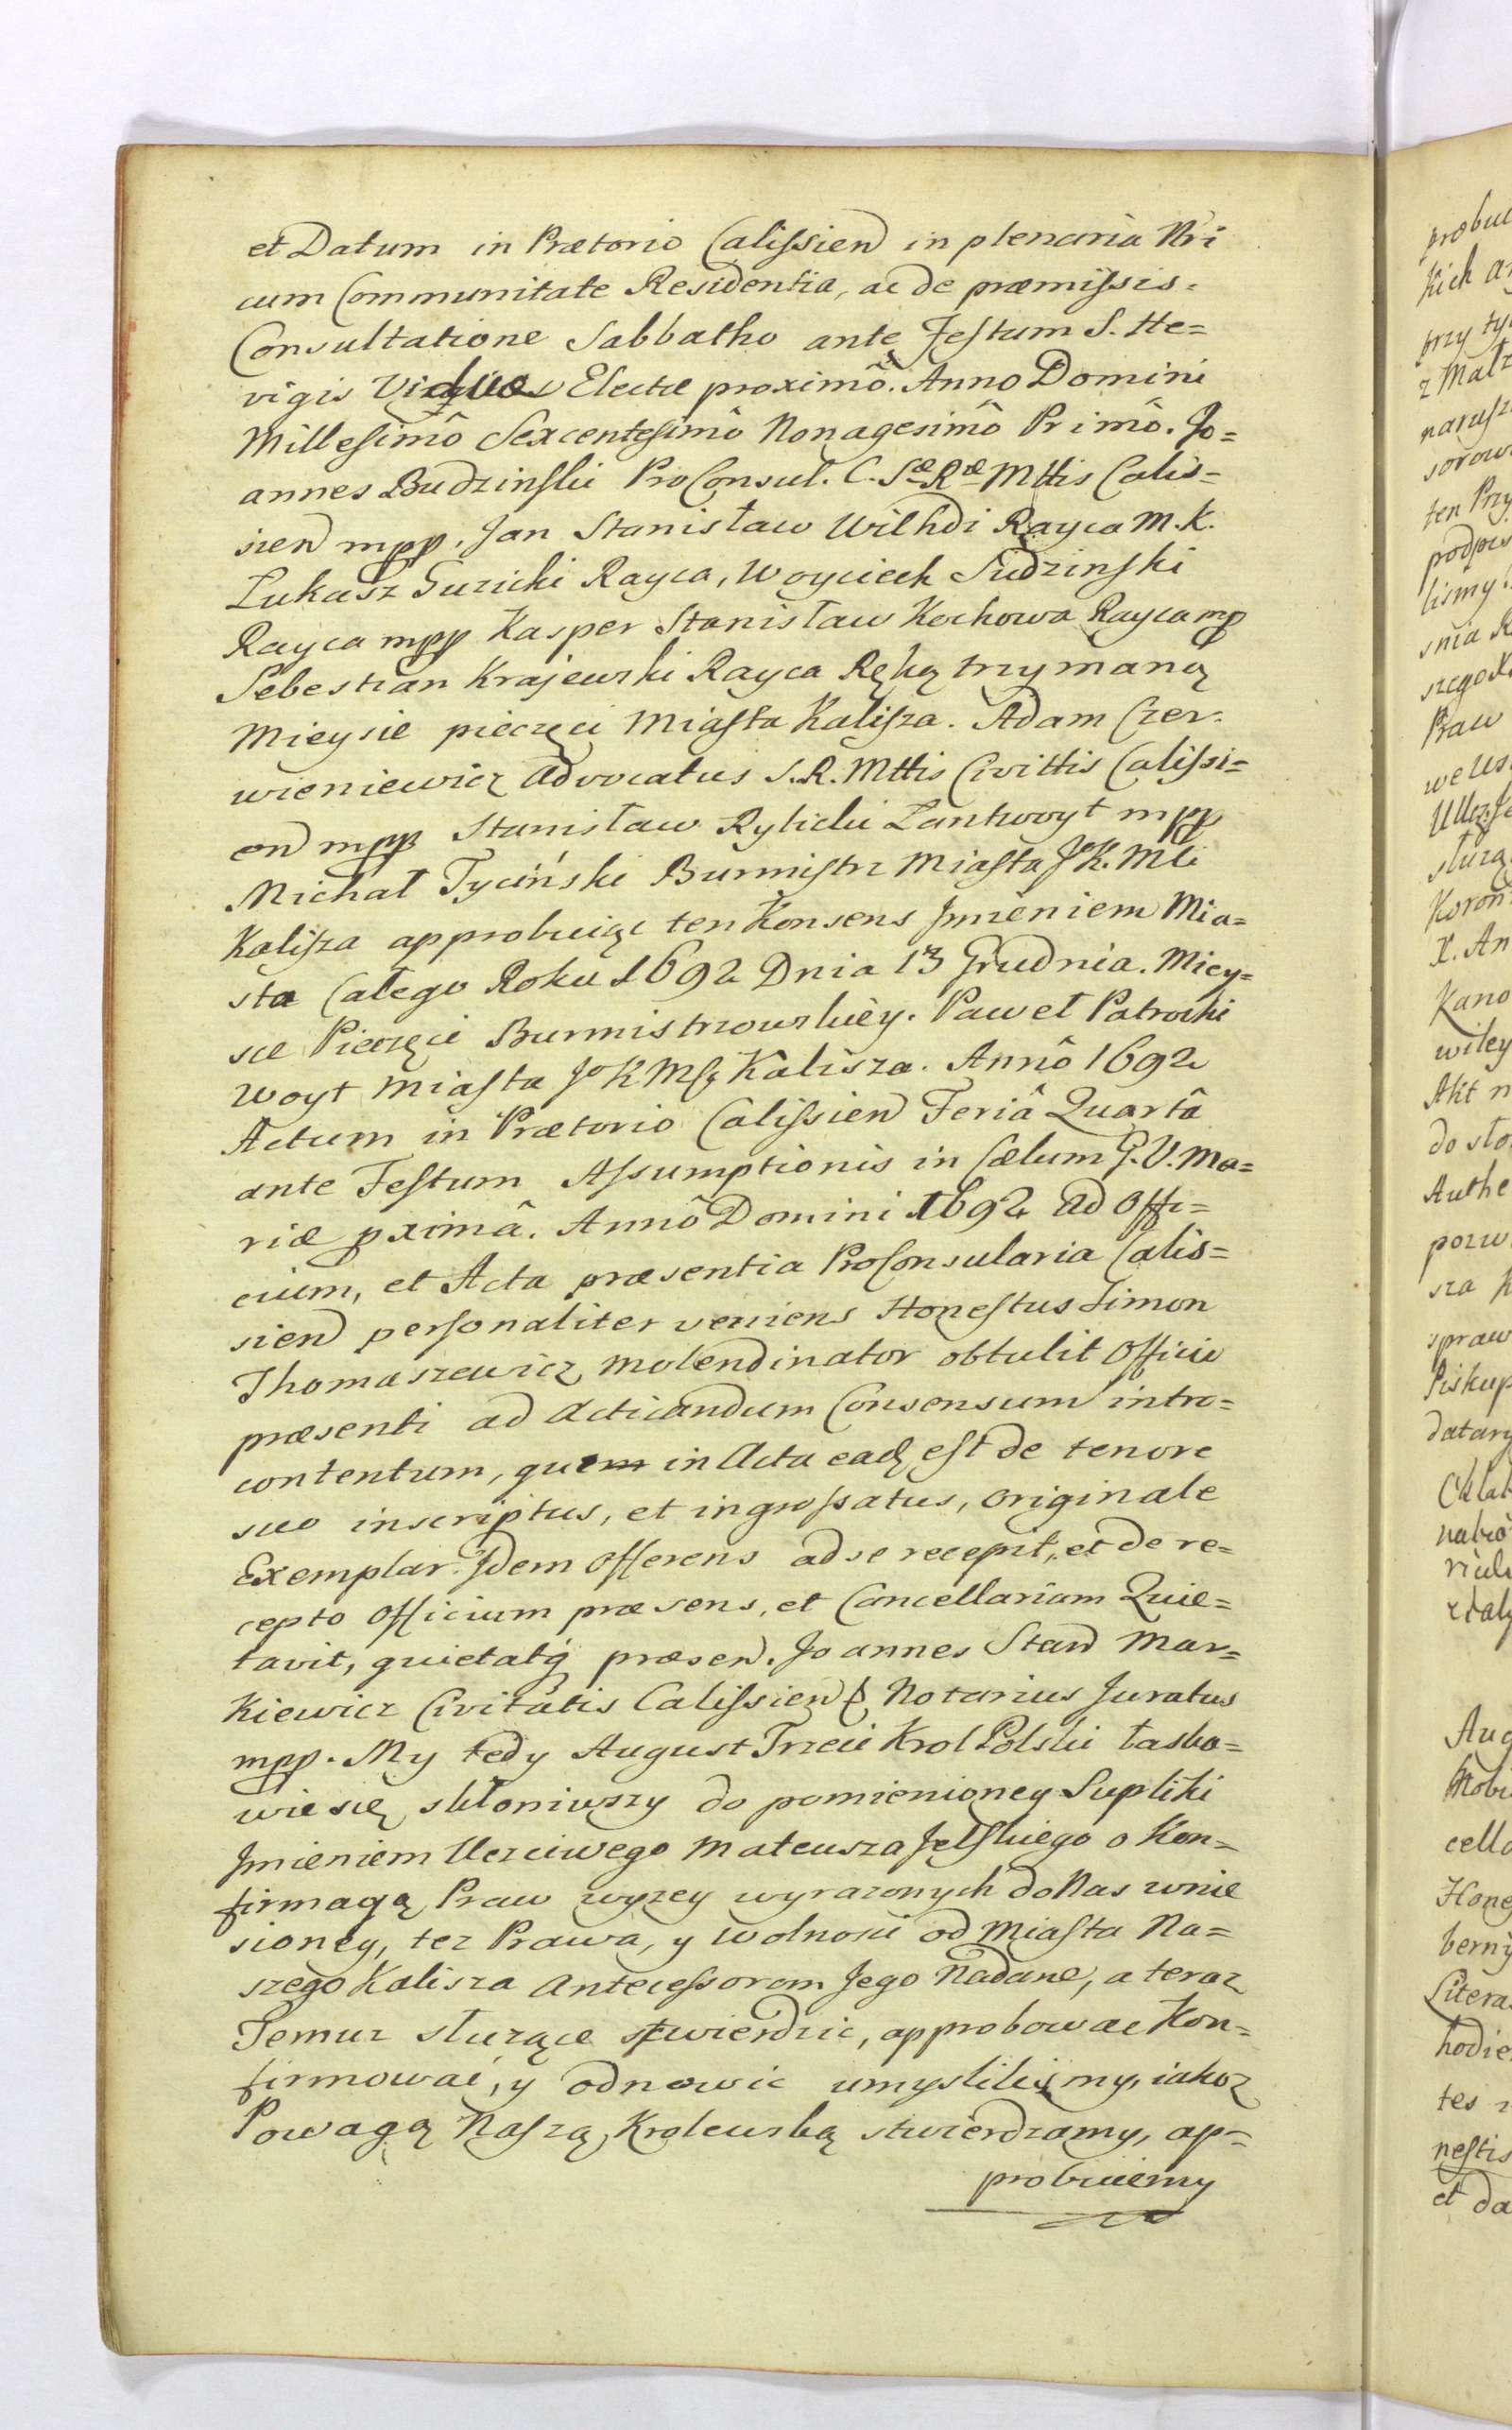 et Datum in Prætorio Calissien in plenaria Nri
cum Communitate Residentia, ac de præmissis.
Consultatione Sabbatho ante Festum S. He=
vigis Viduæ Electæ proximô. Anno Domini
Millesimô Sexcentesimô Nonagesimô Primô. Jo=
annes Budzinski ProConsul. C. Sæ Ræ Mttis Calis=
sien mpp. Jan Stanisław Wilhdi Rayca M.K.
Lukasz Guzicki Rayca, Woyciech Sudzinski
Rayca mpp Kasper Stanisław Kochowa Rayca mp
Sebestian Krajewski Rayca Ręką trzymaną
Mieysie pieczęci Miasta Kalisza. Adam Czer=
wieniewicz Advocatus S.R. Mttis Civittis Calissi=
en mpp Stanisław Rylicki Lantwoyt mpp
Michał Tyciński Burmistrz Miasta JK. Mci
Kalisza approbuiąc ten Konsens Jmieniem Mia=
sta Całego Roku 1692 Dnia 13 Grudnia. Miey=
sce Pieczęci Burmistrzowskiey. Paweł Patrocki
Woyt Miasta Jo K Mści Kalisza. Annô 1692
Actum in Prætorio Calissien Feriâ Quartâ
ante Festum Assumptionis in Cælum G. V. Ma=
riæ pximâ. Annô Domini 1692 ad Offi=
cium, et Acta præsentia ProConsularia Calis=
sien personaliter veniens Honestus Simon
Thomaszewicz Molendinator obtulit Officio
præsenti ad acticandum Consensum intro=
contentum, quem in Acta eadź est de tenore
suo inscriptus, et ingrossatus, originale
Exemplar Jdem offerens ad se recepit, et de re=
cepto Officium præsens, et Cancellariam Quie=
tavit, quietatq́ præsen. Joannes Stan Mar=
kiewicz Civitatis Calissien Notarius Juratus
mpp. My tedy August Trzeci Krol Polski łaska=
wie się skłoniwszy do pomienioney Supliki
Jmieniem Uczciwego Mateusza Jelskiego o Kon=
firmacyą Praw wyzey wyrazonych do Nas wnie
sioney, tez Prawa, y Wolnosci od Miasta Na=
szego Kalisza Antecessorom Jego Nadane, a teraz
Temuz słuzące stwierdzic, approbowac Kon=
firmować, y odnowic umyslilismy, iakoz
Powagą Naszą Krolewską stwierdzamy, ap=
probuiemy